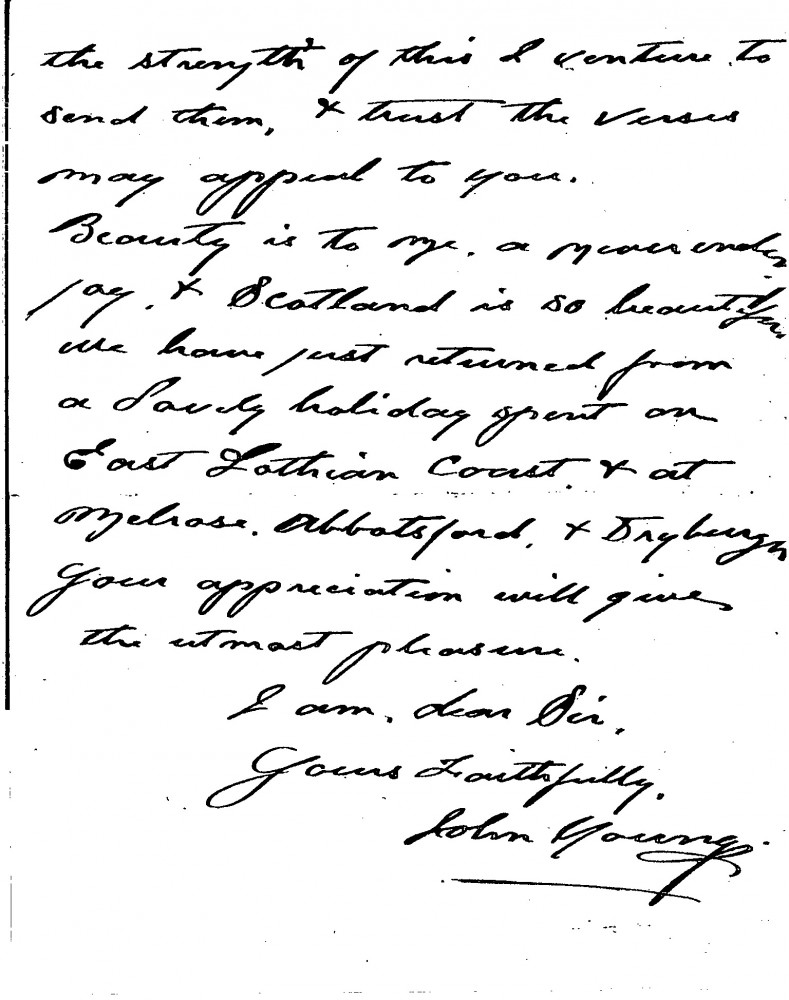 the strength of this I venture to
send them, & trust the verses
may appeal to you.
Beauty is to me, a never endin
joy, & Scotland is so beautiful,
we have just returned from
a lovely holiday spent on
East Lothian Coast, & at
Melrose, Abbotsford, & Dryburgh
Your appreciation will give
the utmost pleasure.
I am, dear Sir,
Yours Faithfully,
John Young.